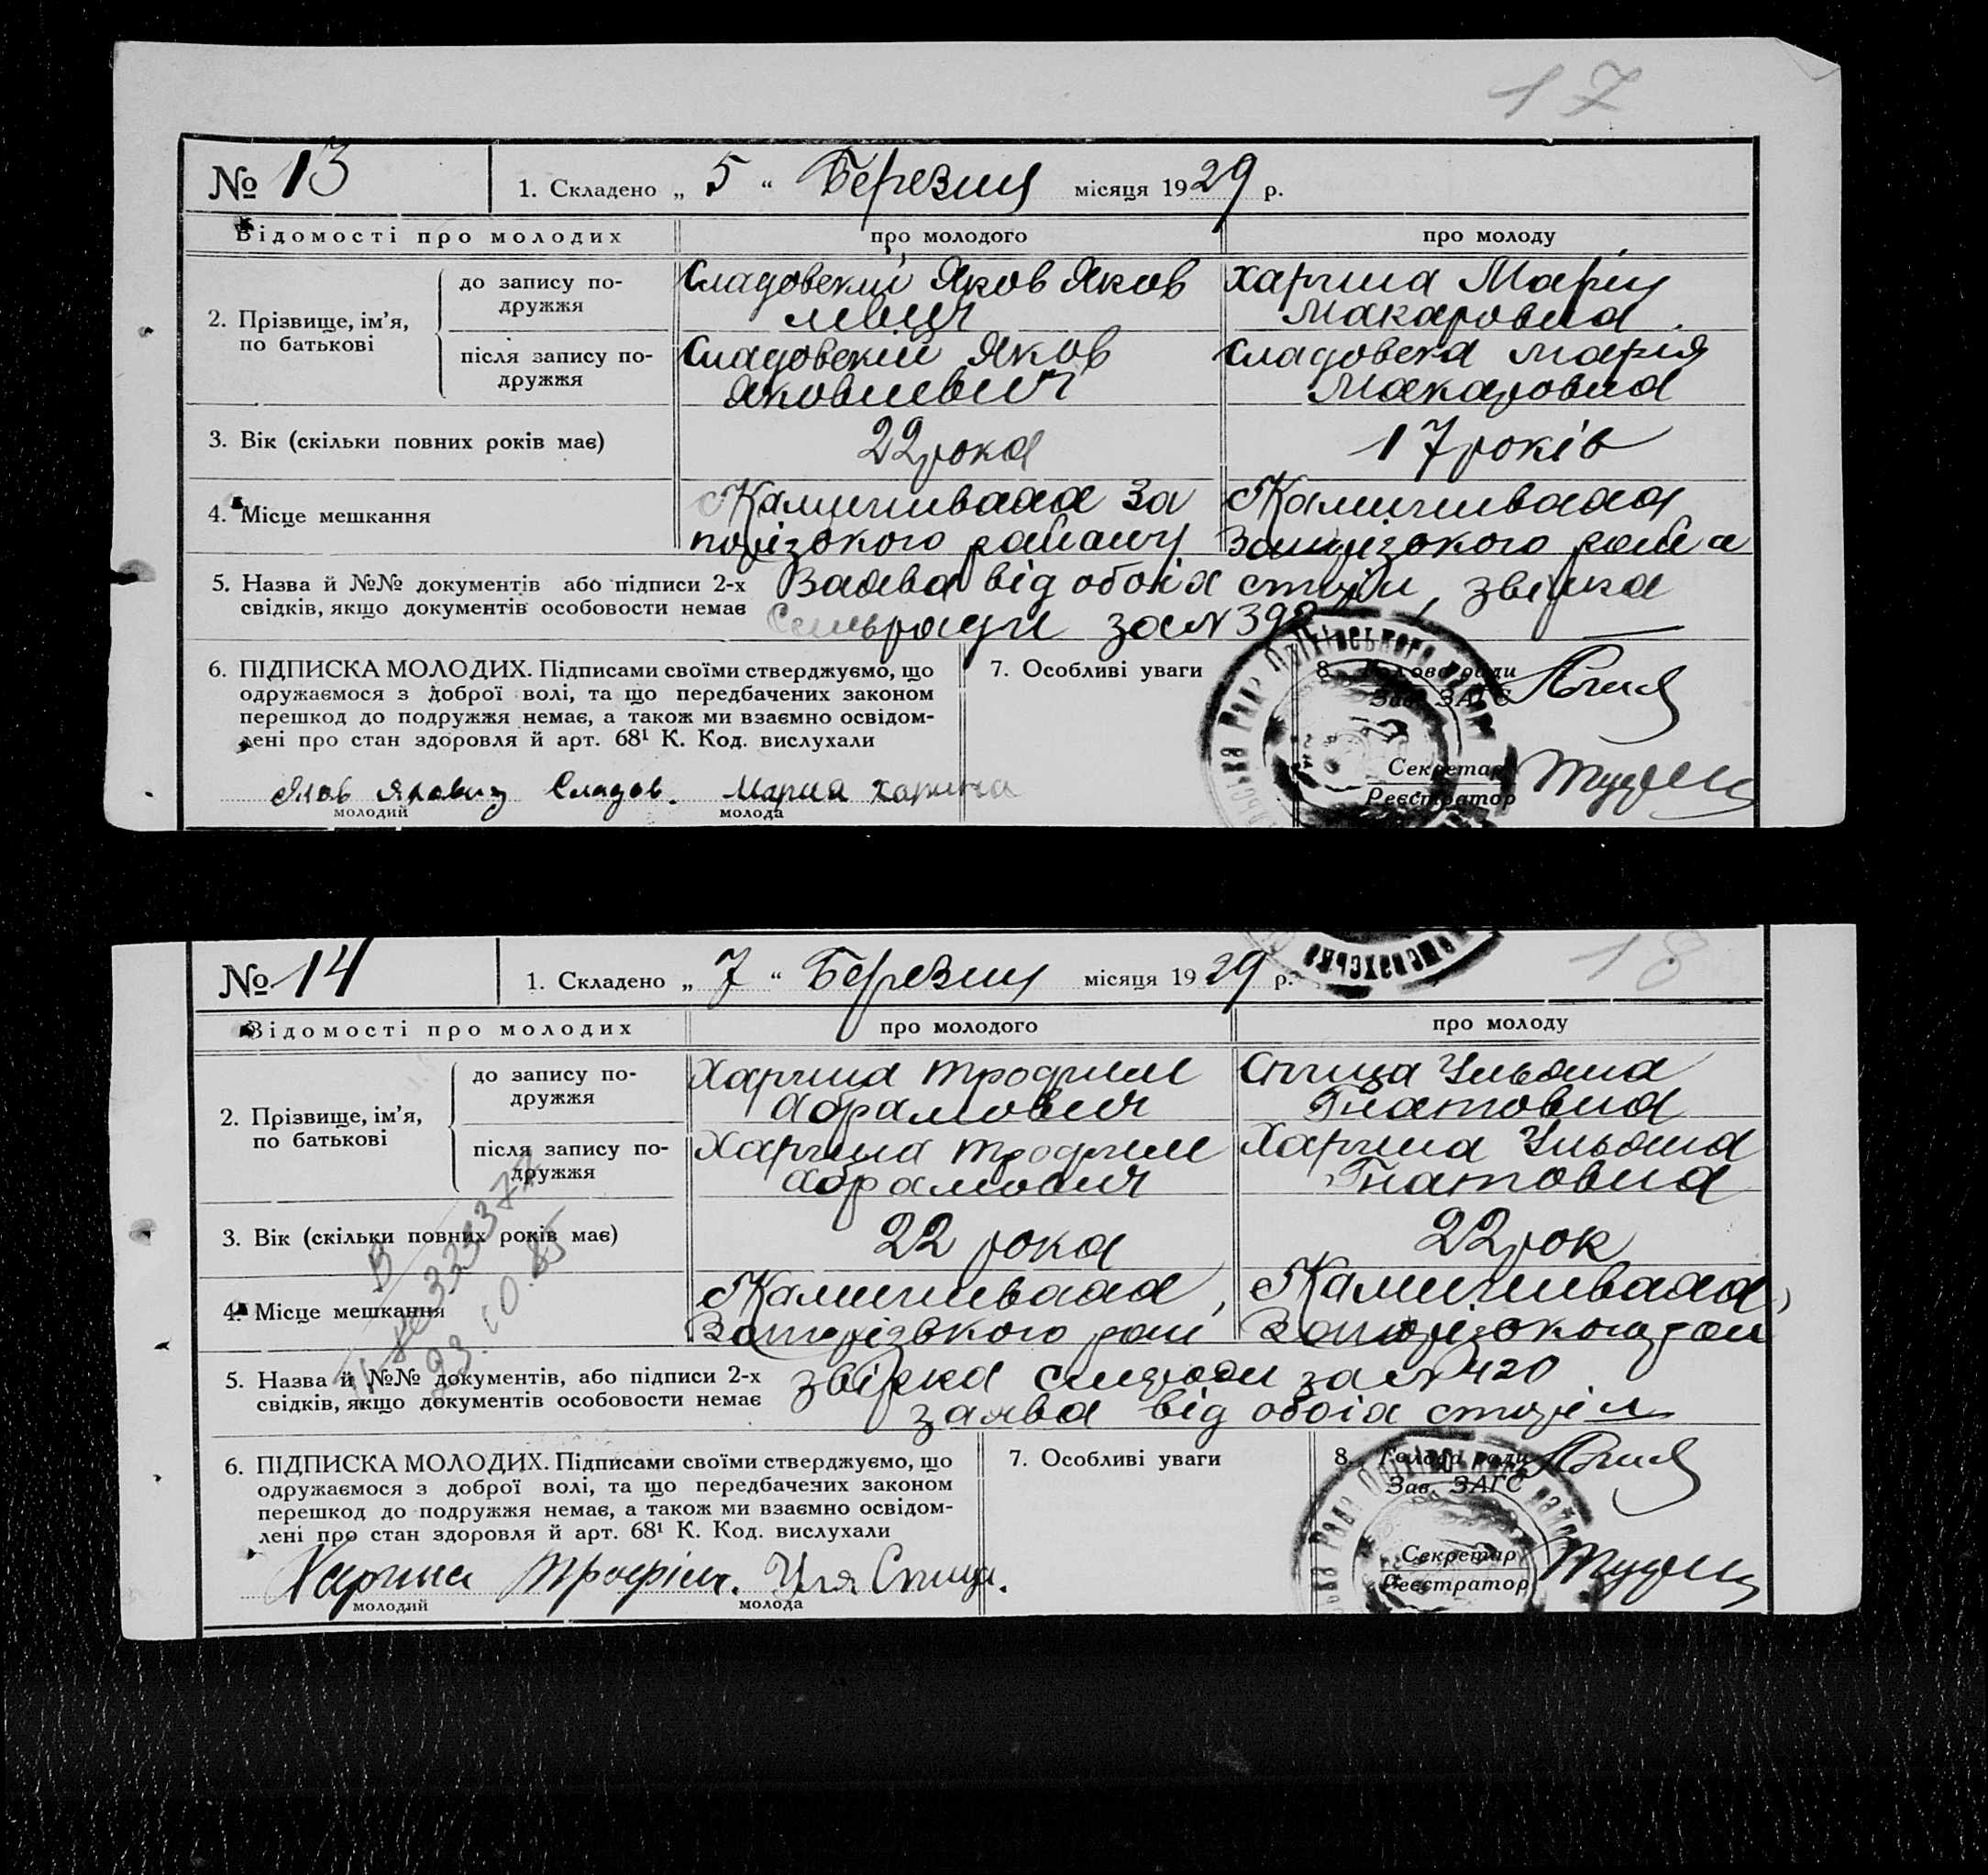 17
№ 13
1. Складено „ 5 “ Березня місяця 1929 р.
Відомості про молодих
про молодого
про молоду
2. Прізвище, ім’я, по батькові
до запису по-
дружжя
Сладовский Яков Яков
левич
Харина Марія
Макаровна
після запису по-
дружжя
Сладовскій Яков
Яковлевич
Сладовска Мария
Макаровна
3. Вік (скільки повних років має)
22 рока
17 років
4. Місце мешкання
Камишеваха За
порізького району
Камишеваха
Запорізького рай а
5. Назва й №№ документів або підписи 2-х
свідків, якщо документів особовости немає
Заява від обоіх сторін, звірка
Сельради за №
6. ПІДПИСКА МОЛОДИХ. Підписами своїми стверджуємо, що
одружаємося з доброї волі, та що передбачених законом
перешкод до подружжя немає, а також ми взаємно освідом-
лені про стан здоровля й арт. 68¹ К. Код. вислухали
Сладов. Мария Харина
молодий
молода
7. Особливі уваги
8. Голова ради
Зав. ЗАГС
Секретар
Реєстратор
18
№ 14
1. Складено „ 7 “ Березня місяця 1929 р.
Відомості про молодих
про молодого
про молоду
2. Прізвище, ім’я,
по батькові
до запису по-
дружжя
Харина Трофим
Абрамович
Спица Ульяна
Гнатовна
після запису по-
дружжя
Харина Трофим
Абрамович
Харина Ульяна
Гнатовна
3. Вік (скільки повних років має)
22 рока
22 рок
4. Місце мешкання
Камишеваха,
Запорізького рай
Камишеваха,
Запорізького рай
5. Назва й №№ документів, або підписи 2-х
свідків, якщо документів особовости немає
звірка сельради за № 420
заява від обоіх сторін
6. ПІДПИСКА МОЛОДИХ. Підписами своїми стверджуємо, що
одружаємося з доброї волі, та що передбачених законом
перешкод до подружжя немає, а також ми взаємно освідом-
лені про стан здоровля й арт. 68¹ К. Код. вислухали
Харина Трофім. Спица.
молодий
молода
7. Особливі уваги
8. Голова ради
Зав. ЗАГС
Секретар
Реєстратор